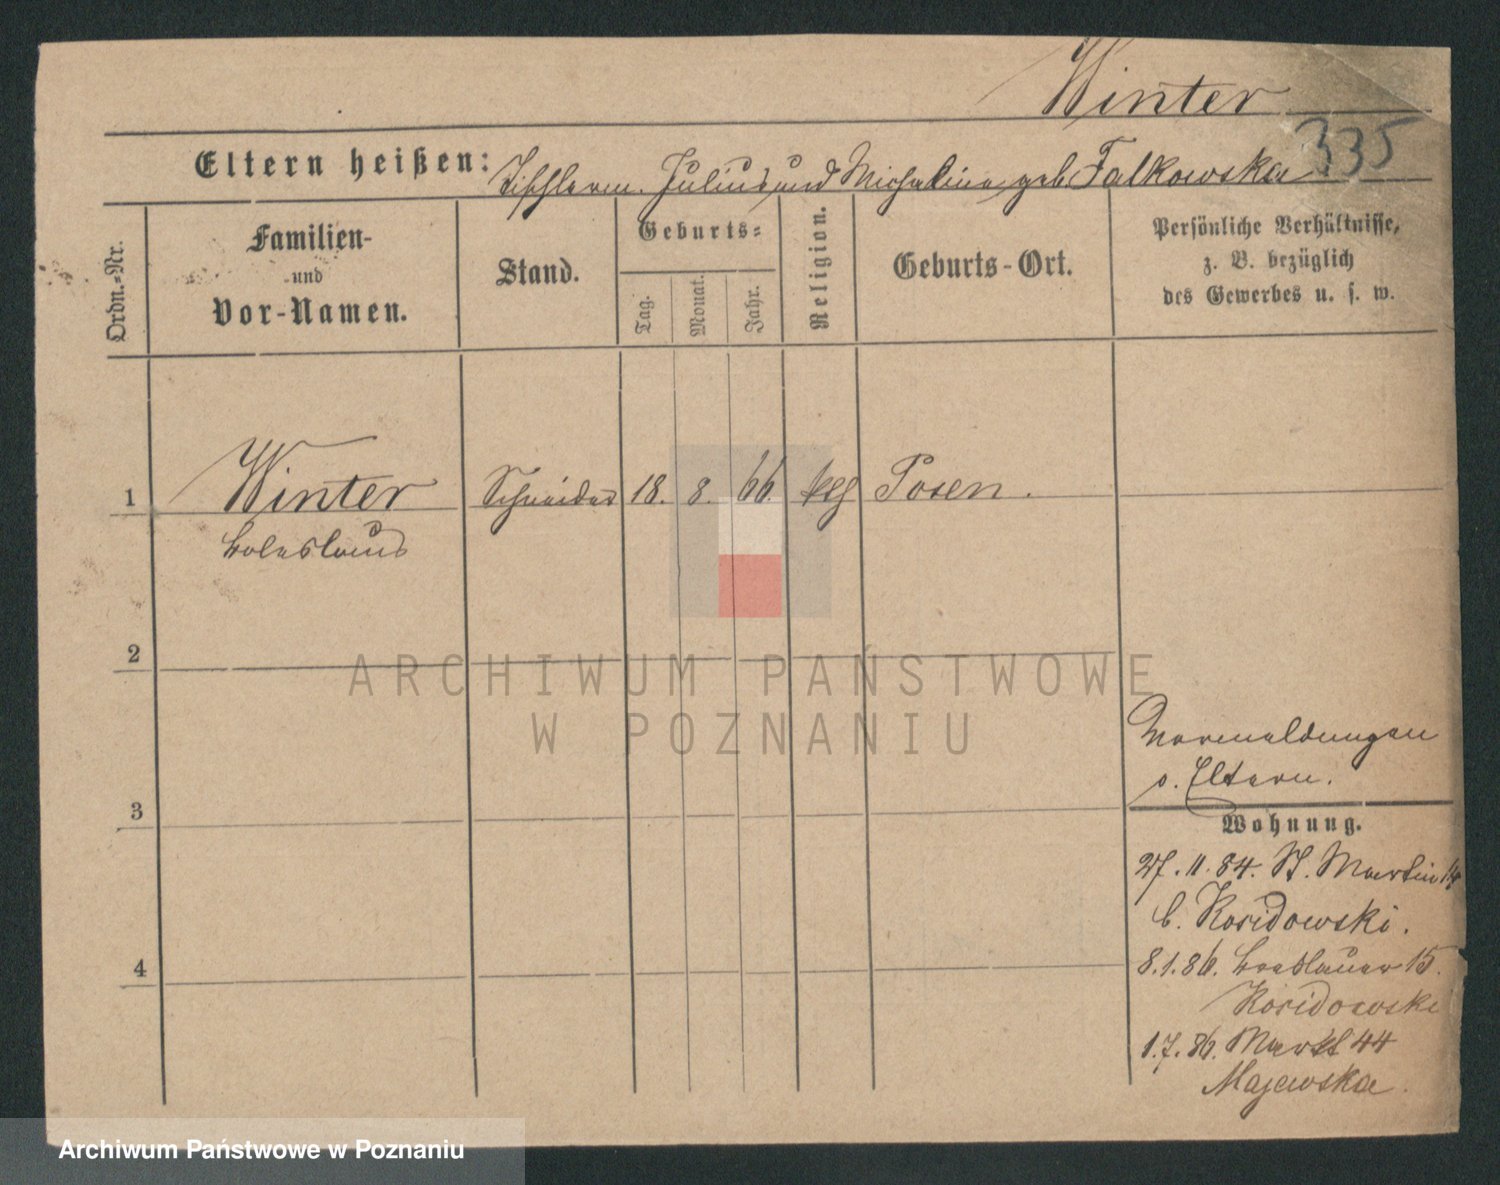 Winter
335
Eltern heißen: Tischlerm. Julius und Michalina geb. Falkowska
Ordn.-Nr.
Familien-
und
Vor-Namen.
Stand.
Geburts-
Tag.
Monat.
Jahr.
Religion.
Geburts-Ort.
Persönliche Verhältnisse,
z. B. bezüglich
des Gewerbes u. s. w.
1 Winter Schneider 18. 8. 66. ktlh Posen.
Boleslaus
2
ARCHIWUM PAŃSTWOWE
W POZNANIU
Vormeldungen
s. Eltern.
3
Wohnung.
27. 11. 84. St. Martin 14
b. Kosidowski.
4
8. 1. 86. Breslauer 15.
Kosidowski
1. 7. 86. Markt 44
Majewska.
Archiwum Państwowe w Poznaniu